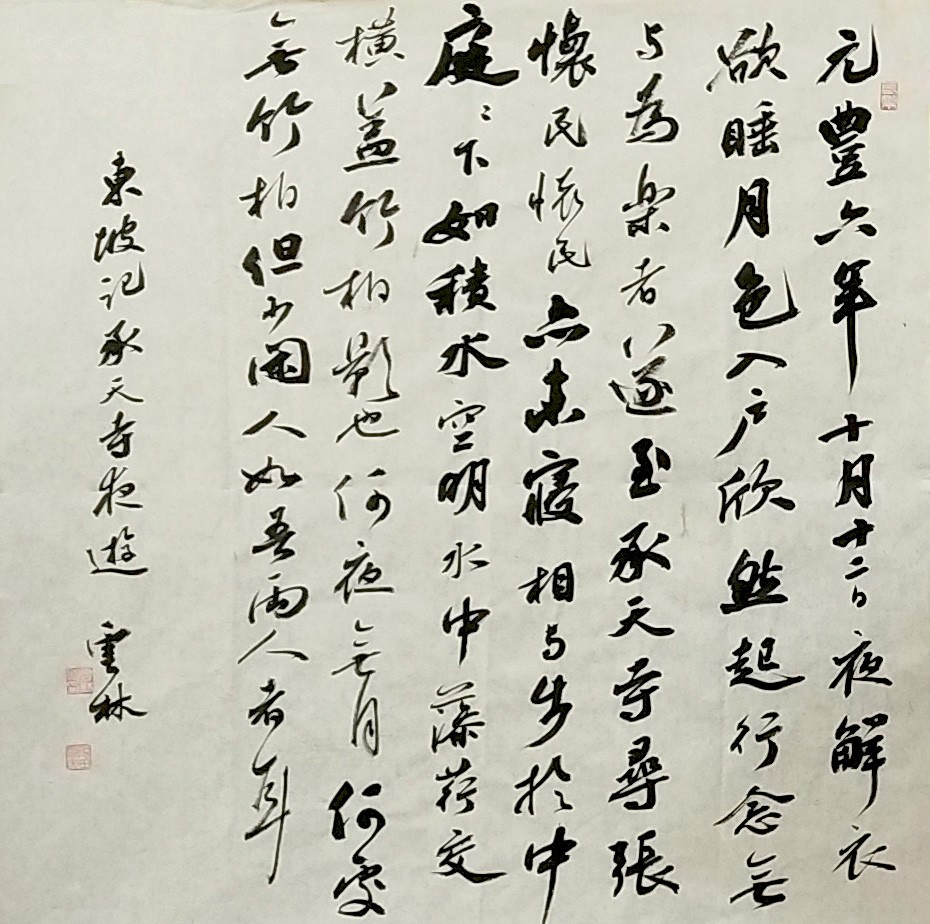 元豐六年十月十二日夜解衣
欲睡月色入户欣然起行念无
与為樂者遂至承天寺尋張
懷民懷民亦未寢相与步於中
庭〻下如積水空明水中藻荇交
横蓋竹柏影也何夜无月何處
无竹柏但少閑人如吾兩人者耳
東坡記承天寺夜遊 雲林